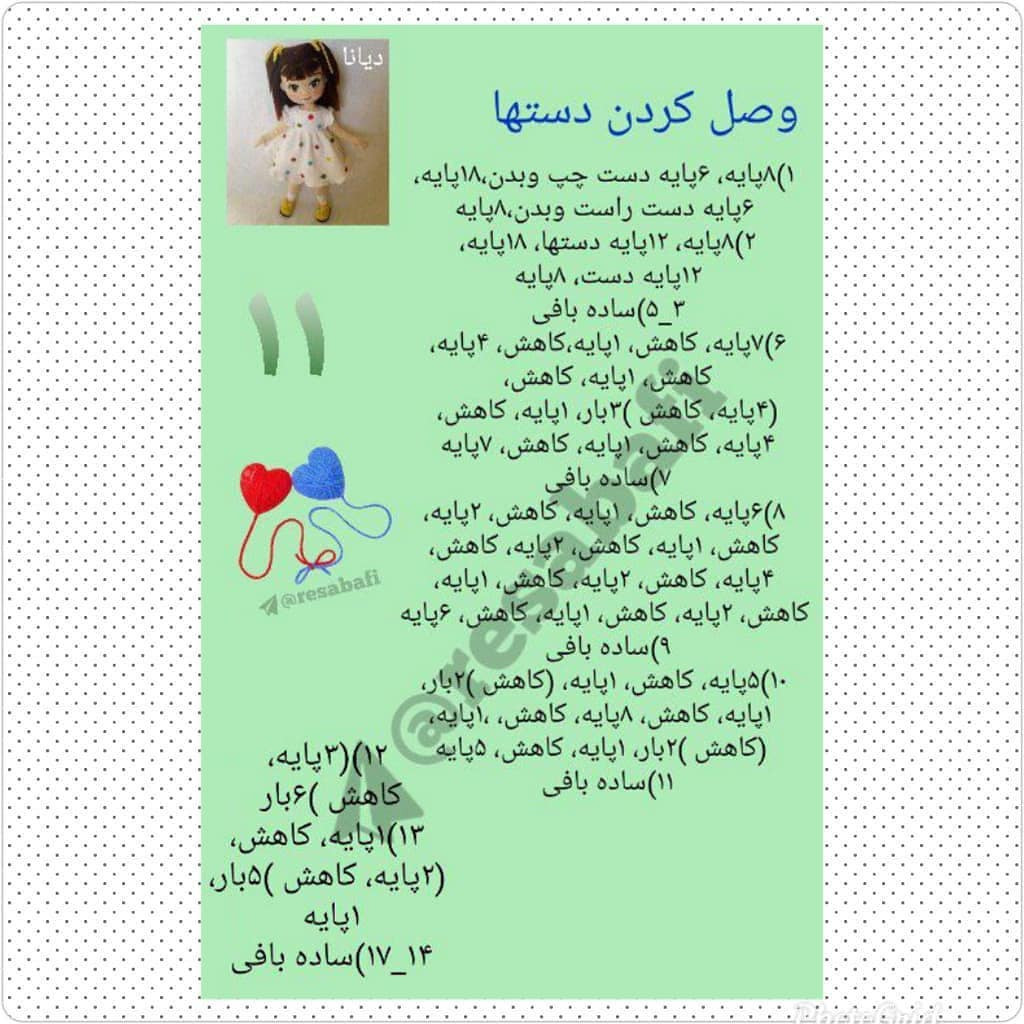 دیانا
وصل کردن دستها
۱)۸پایه، ۶پایه دست چپ وبدن،۱۸پایه،
۶پایه دست راست وبدن،۸پایه
۲)۸پایه، ۱۲پایه دستها، ۱۸پایه،
۱۲پایه دست، ۸پایه
۳_۵)ساده بافی
۶)۷پایه، کاهش، ۱پایه،کاهش، ۴پایه،
کاهش، ۱پایه، کاهش،
(۴پایه، کاهش )۳بار، ۱پایه، کاهش،
۴پایه، کاهش، ۱پایه، کاهش، ۷پایه
۷)ساده بافی
۸)۶پایه، کاهش، ۱پایه، کاهش، ۲پایه،
کاهش، ۱پایه، کاهش، ۲پایه، کاهش،
۴پایه، کاهش، ۲پایه، کاهش، ۱پایه،
کاهش، ۲پایه، کاهش، ۱پایه، کاهش، ۶پایه
۹)ساده بافی
۱۰)۵پایه، کاهش، ۱پایه، (کاهش )۲بار،
۱پایه، کاهش، ۸پایه، کاهش، ،۱پایه،
(کاهش )۲بار، ۱پایه، کاهش، ۵پایه
۱۱)ساده بافی
۱۱
@resabafi
@resabafi
۱۲)(۳پایه،
کاهش )۶بار
۱۳)۱پایه، کاهش،
(۲پایه، کاهش )۵بار،
۱پایه
۱۴_۱۷)ساده بافی
PhotoGrid